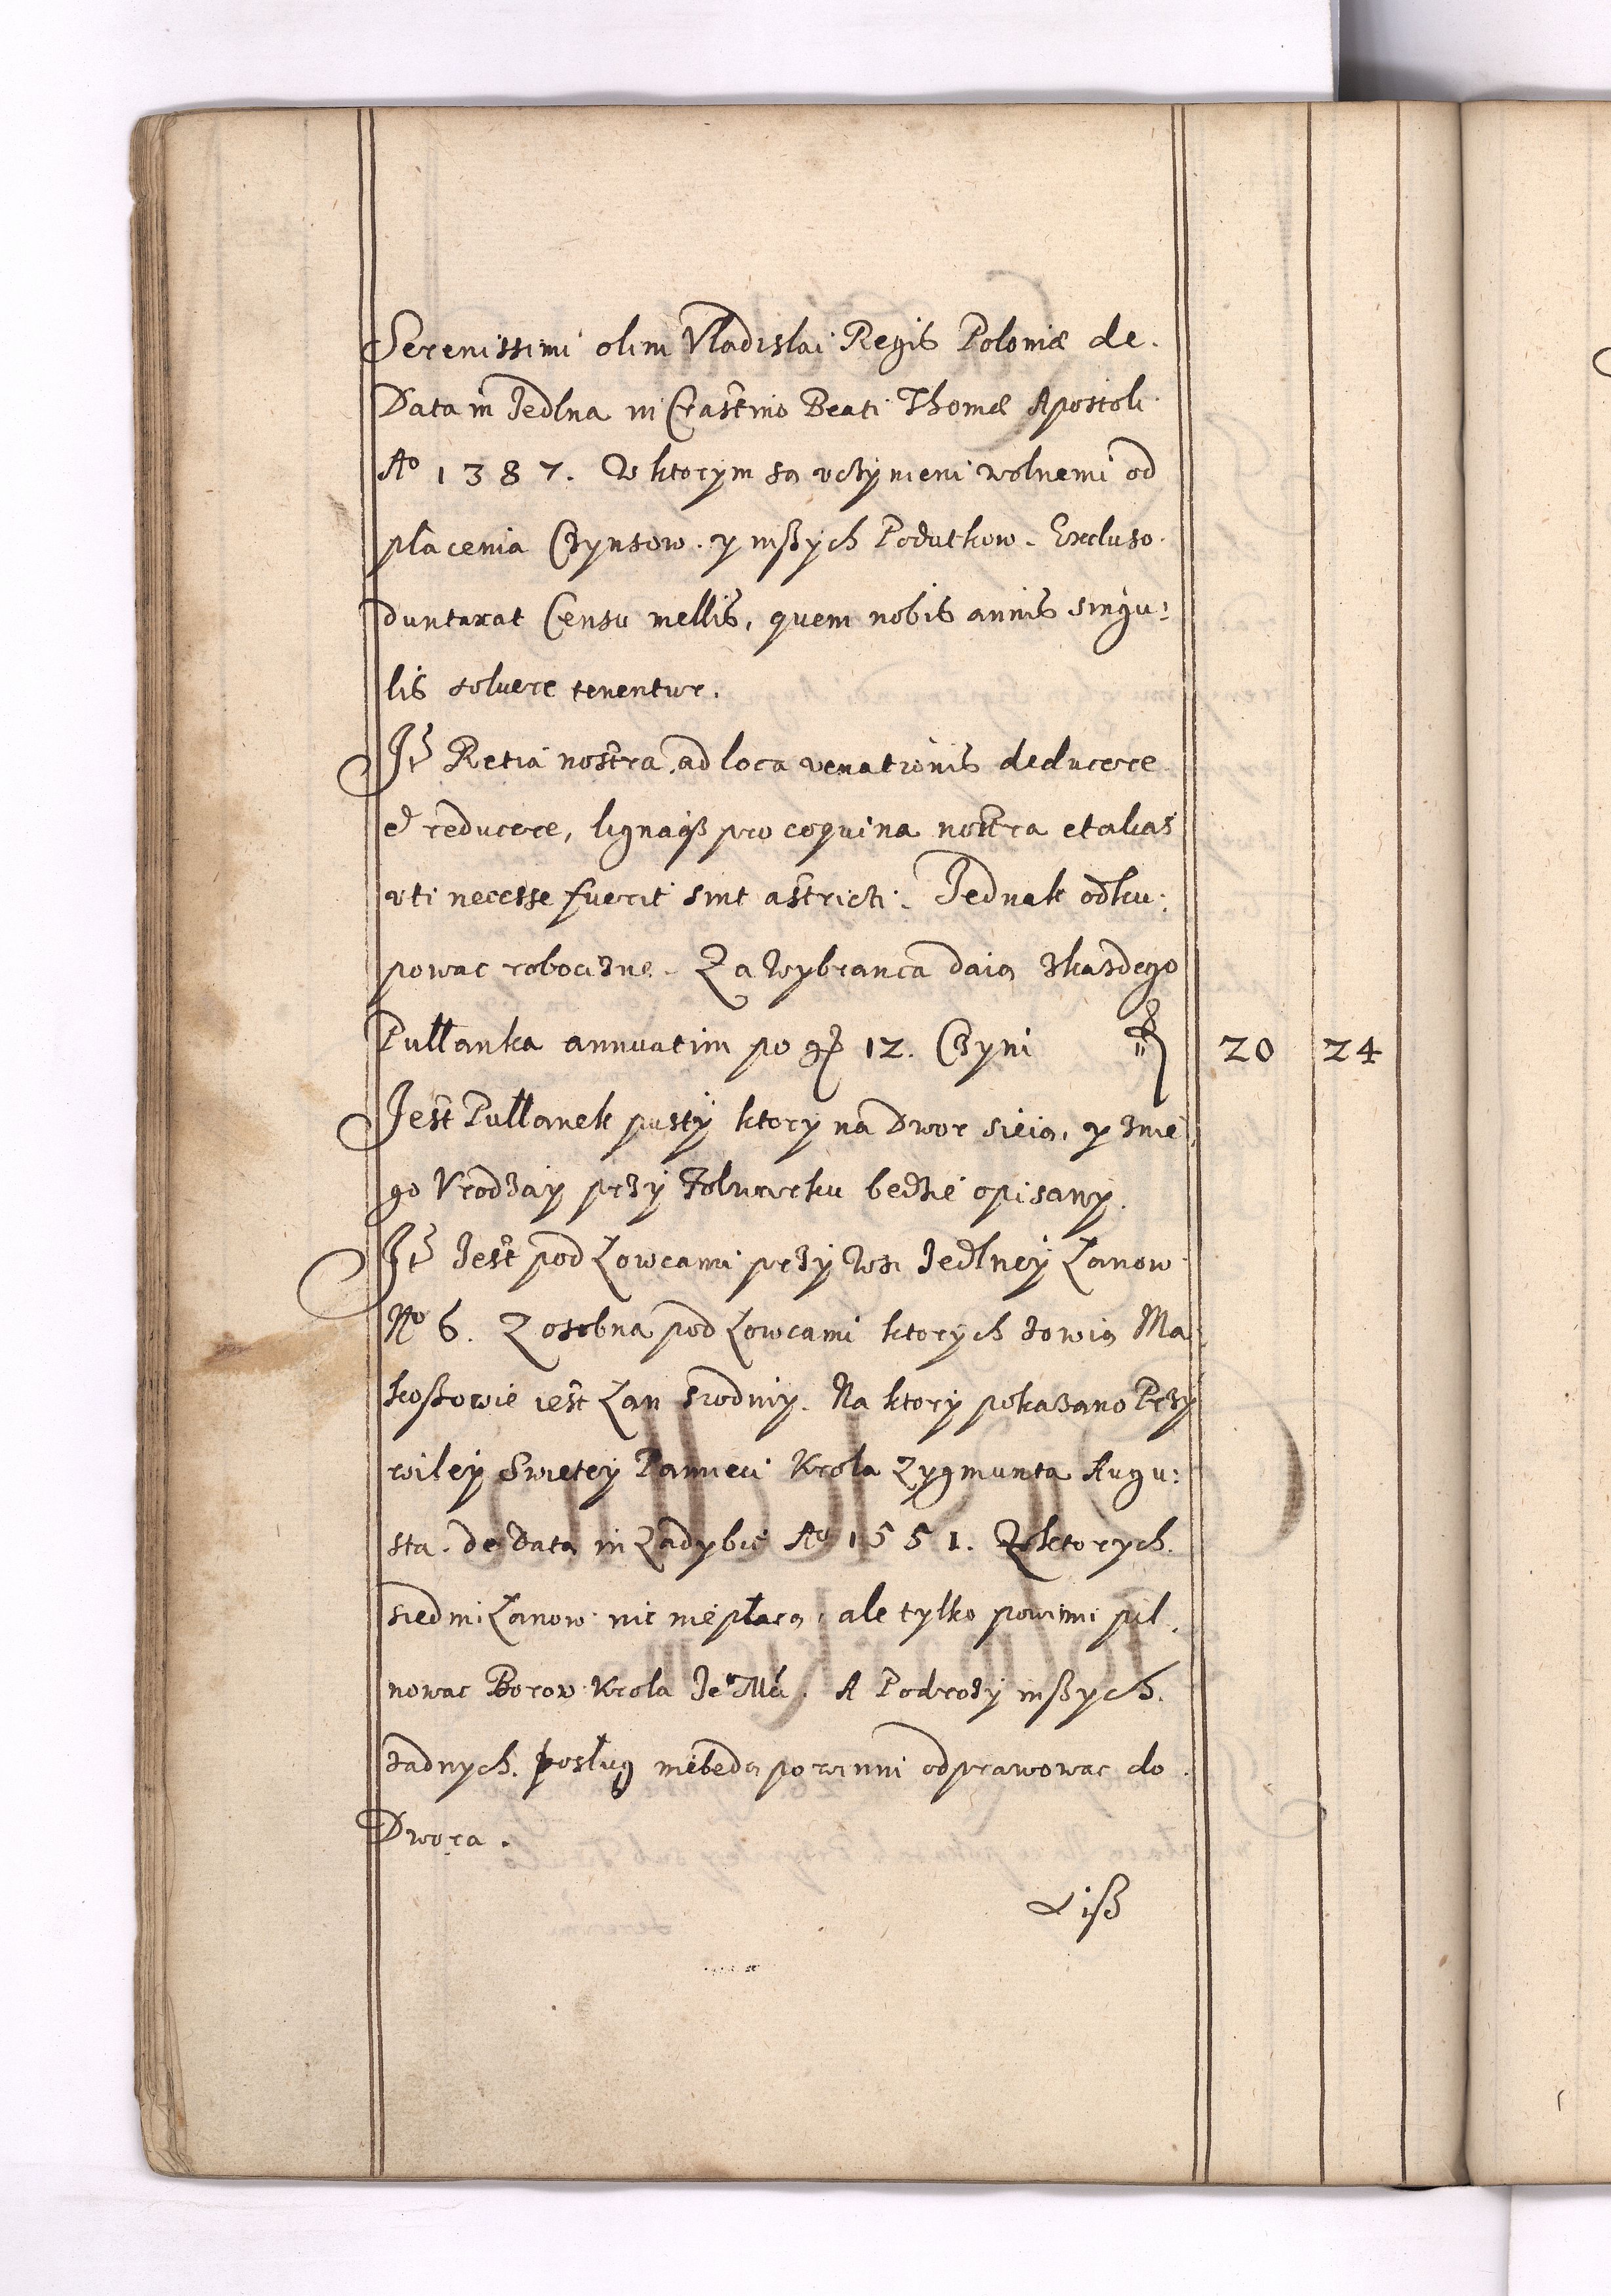 Serenissimi olim Vladislai Regis Poloniæ de.
Data in Jedlna in Crastino Beati Thomæ Apostoli
Aº 1387. W ktorym są vczynieni wolnemi od
płacenia Czynsow. y inßych Podatkow. Excluso.
duntaxat Censu mellis, quem nobis annis singu:
lis soluere tenentur.
Jt Retia nostra, ad loca venationis deducere
et reducere, lignaqß pro coquina nostra et alias
vti necesse fuerit sint astricti. Jednak odku:
powac robociznę. Za Wybranca daią zkazdego
Pułłanka annuatim po gß 12. Czyni fl 20 24
Jest Pułłanek pusty ktory na Dwor sieią, y znie
go Vrodzay przy Folwarku będzie opisany.
Jt Jest pod Łowcami przy Wsi Jedlney Łanow
Nº 6. Zosobna pod Łowcami ktorych zowią Ma
koßowie iest Łan srodmy. Na ktory pokazano Przy
wiley Swietey Pamieci Krola Zygmunta Augu:
sta. de Data in Zadybie Aº 1551. Z ktorych.
siedmi Łanow nic nie płacą, ale tylko powinni pil,
nowac Borow Krola Je Mci. A Podrozy inßych.
zadnych. posług niebędą powinni odprawowac do
Dwora.
&iß